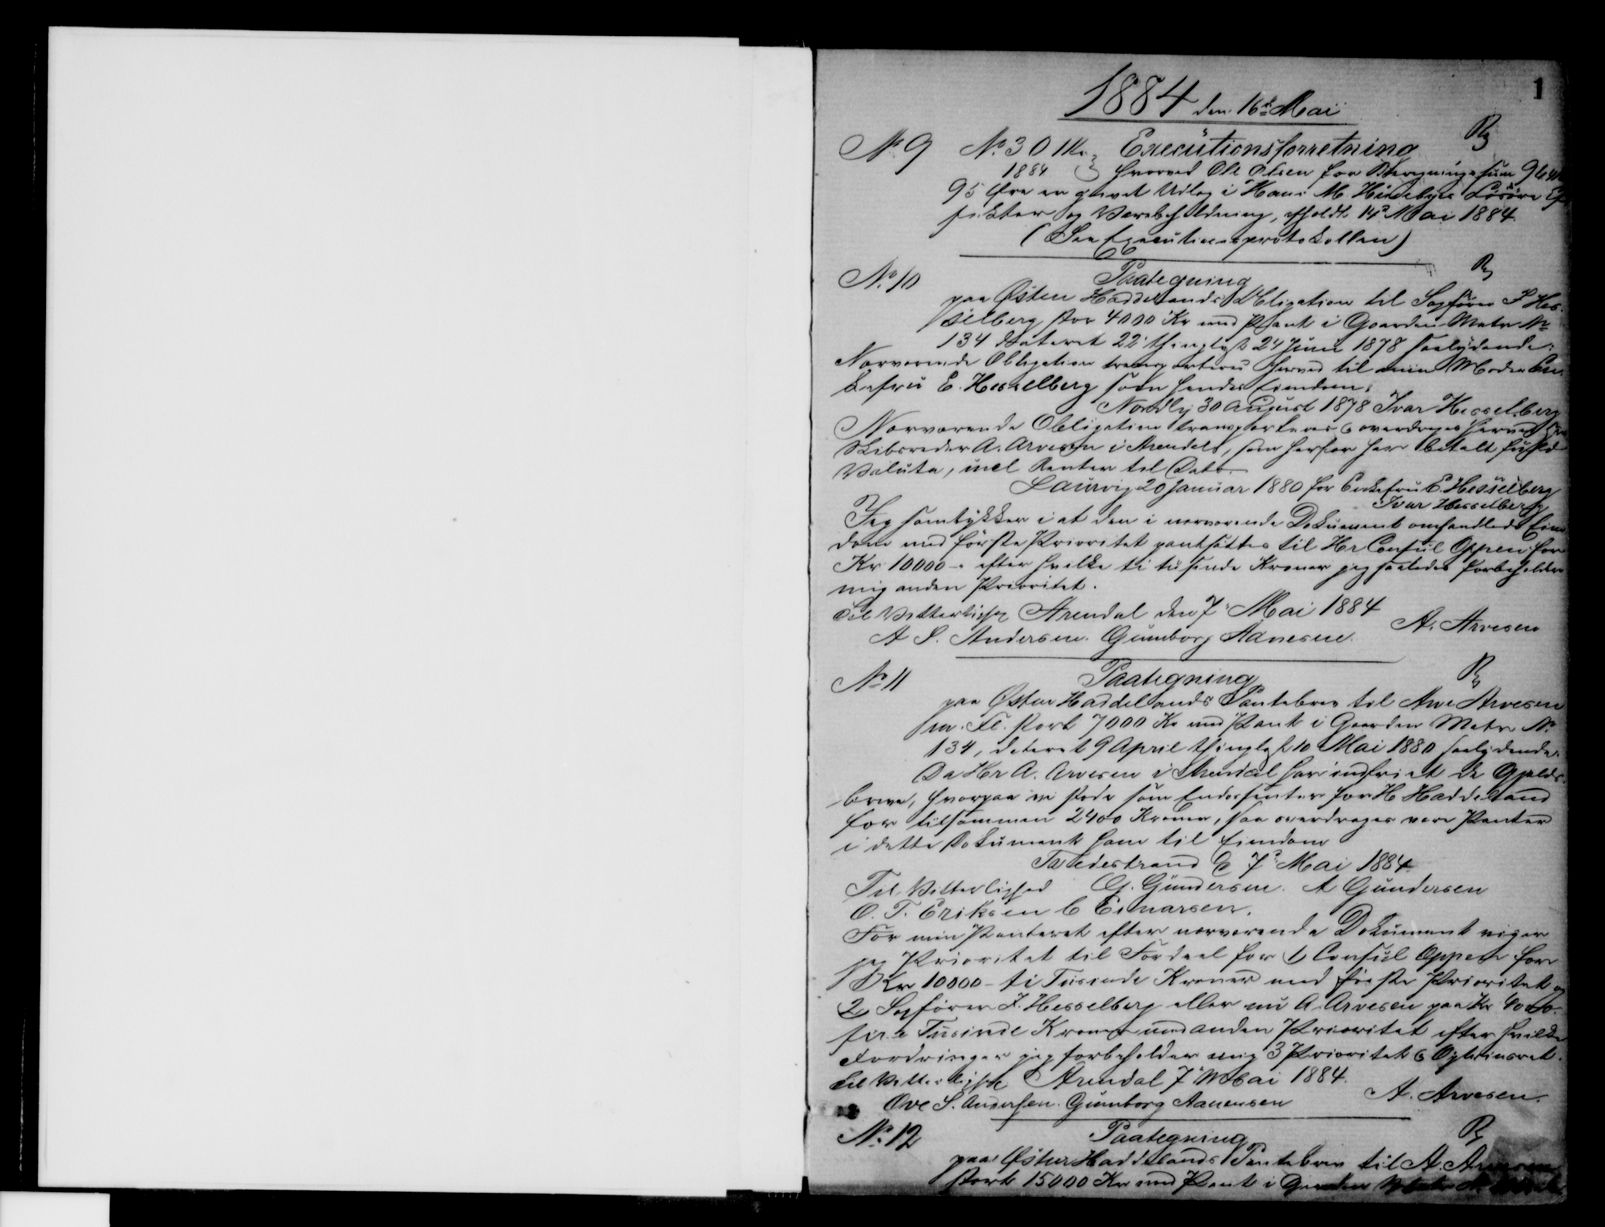 1
1884 den 16de Mai
No 9 No 30 1884 Executionsforretning Rg
hvorved Ole Olsen for Beregningssum
95 Øre er givet Udlæg i Hans M Løsøre
og Varebeholdning, afholdt 14de Mai 1884.
(Se Executionsprotokollen)
No 10 Paategning Rg
paa Østen Haddelands Obligation til Sagfører I Hes-
selberg stor 4000 Kr med Pant i Gaarden Matr No
134 dateret 22 thinglyst 24 Juni 1878 saalydende:
Nærværende Obligation transporteres herved til min Moder En-
kefru E. Hesselberg som hendes Eiendom.
30 August 1878 Ivar Hesselberg
Nærværende Obligation transporteres & overdrages herved
Skibsreder A. Arvesen i Arendal, som herfor har betalt fuld
Valuta, incl Renter til Dato
Laurvig 20 Januar 1880 for Enkefru E. Hesselberg
Ivar Hesselberg
Jeg samtykker i at den i nærværende Dokument omhandlede Eien-
dom med første Prioritet pantsættes til Hr Consul Oppen for
Kr 10000 - efter hvilke ti tusinde Kroner jeg saaledes forbeholder
mig anden Prioritet.
Til Vitterlighed Arendal den 7 Mai 1884
A. Arvesen
A S. Andersen. Gunborg Aanesen.
No 11 Paategning Rg
paa Østen Haddelands Pantebrev til Arve Arvesen
m. Fl. stort 7000 Kr med Pant i Gaarden Matr No
134, dateret 9 April thinglyst 10 Mai 1880 saalydende:
Da Hr A. Arvesen i Arendal har indfriet de Gjelds-
breve, hvorpaa vi stode som Endossenter for H Haddeland
for tilsammen 2400 Kroner, saa overdrages vore Panter
i dette Dokument ham til Eiendom
Tvedestrand 7 Mai 1884
Til Vitterlighed G. Gundersen. A Gundersen
O. T. Eriksen C Einarsen.
For min Panteret efter nærværende Dokument viger
jeg Prioritet til Fordeel for 1) Consul Oppen for
Kr 10000 - ti Tusinde Kroner med første Prioritet og
2) Sagfører I. Hesselberg eller nu A. Arvesen paa Kr 4000-
fire Tusinde Kroner med anden Prioritet efter hvilke
Fordringer jeg forbeholder mig 3 Prioritet & Oprykningsret.
Til Vitterlighed Arendal 7 Mai 1884.
A. Arvesen.
Ove S. Andersen. Gunborg Aanensen
No 12 Paategning Rg
paa Østen Haddelands Pantebrev til A. Arvesen
stort 15000 Kr med Pant i Gaarden